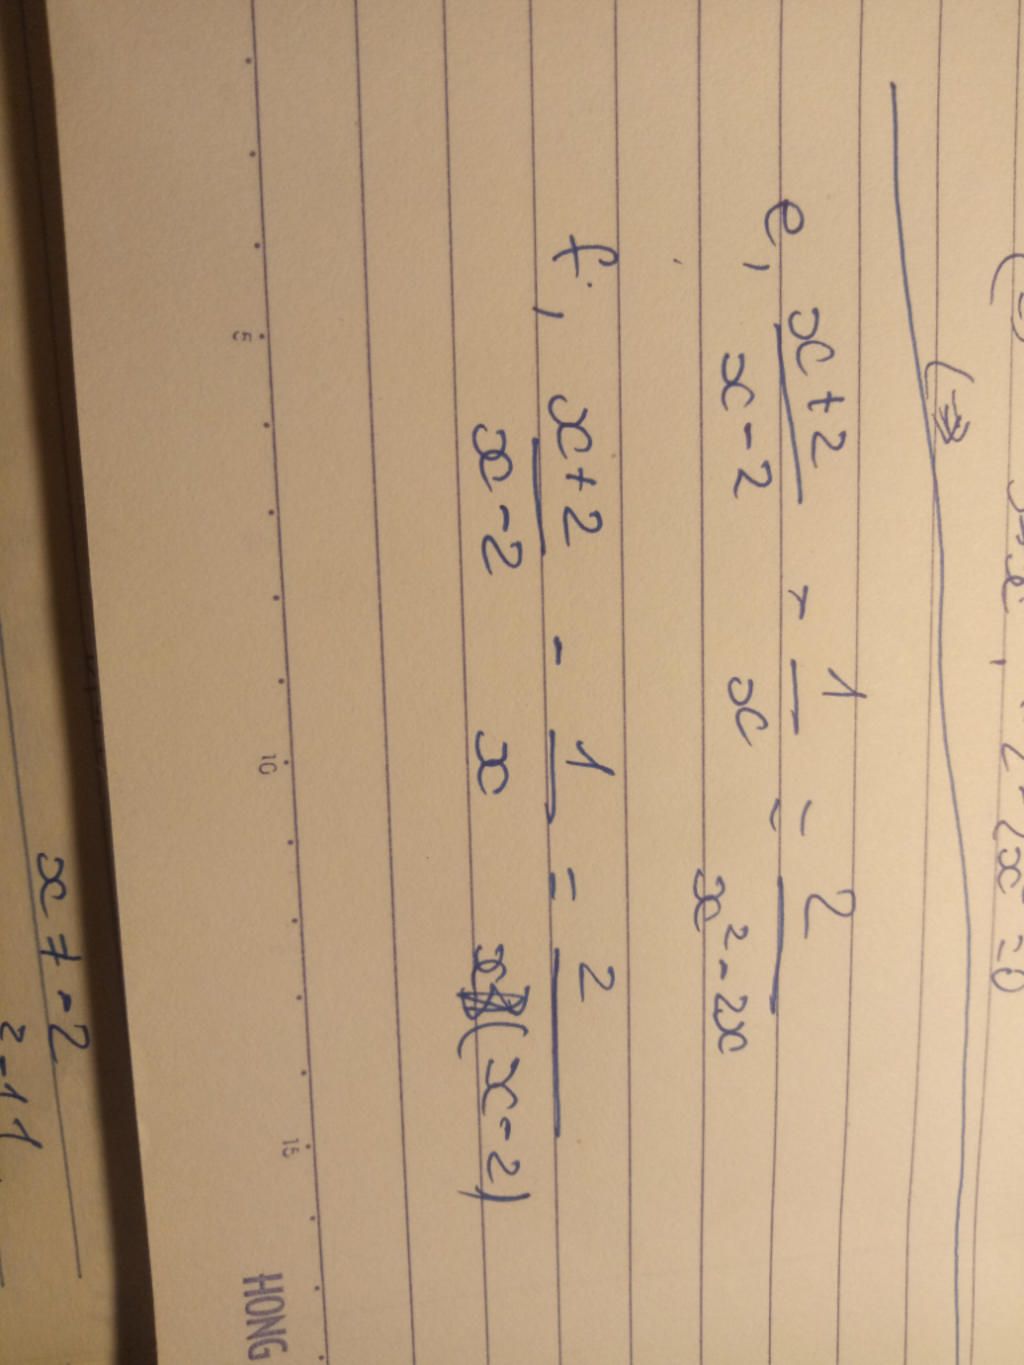 e, x+2/x-2 - 1/x = 2/x²-2x
f, x+2/x-2 - 1/x = 2/x(x-2)
5 10 15
HONG
x≠-2